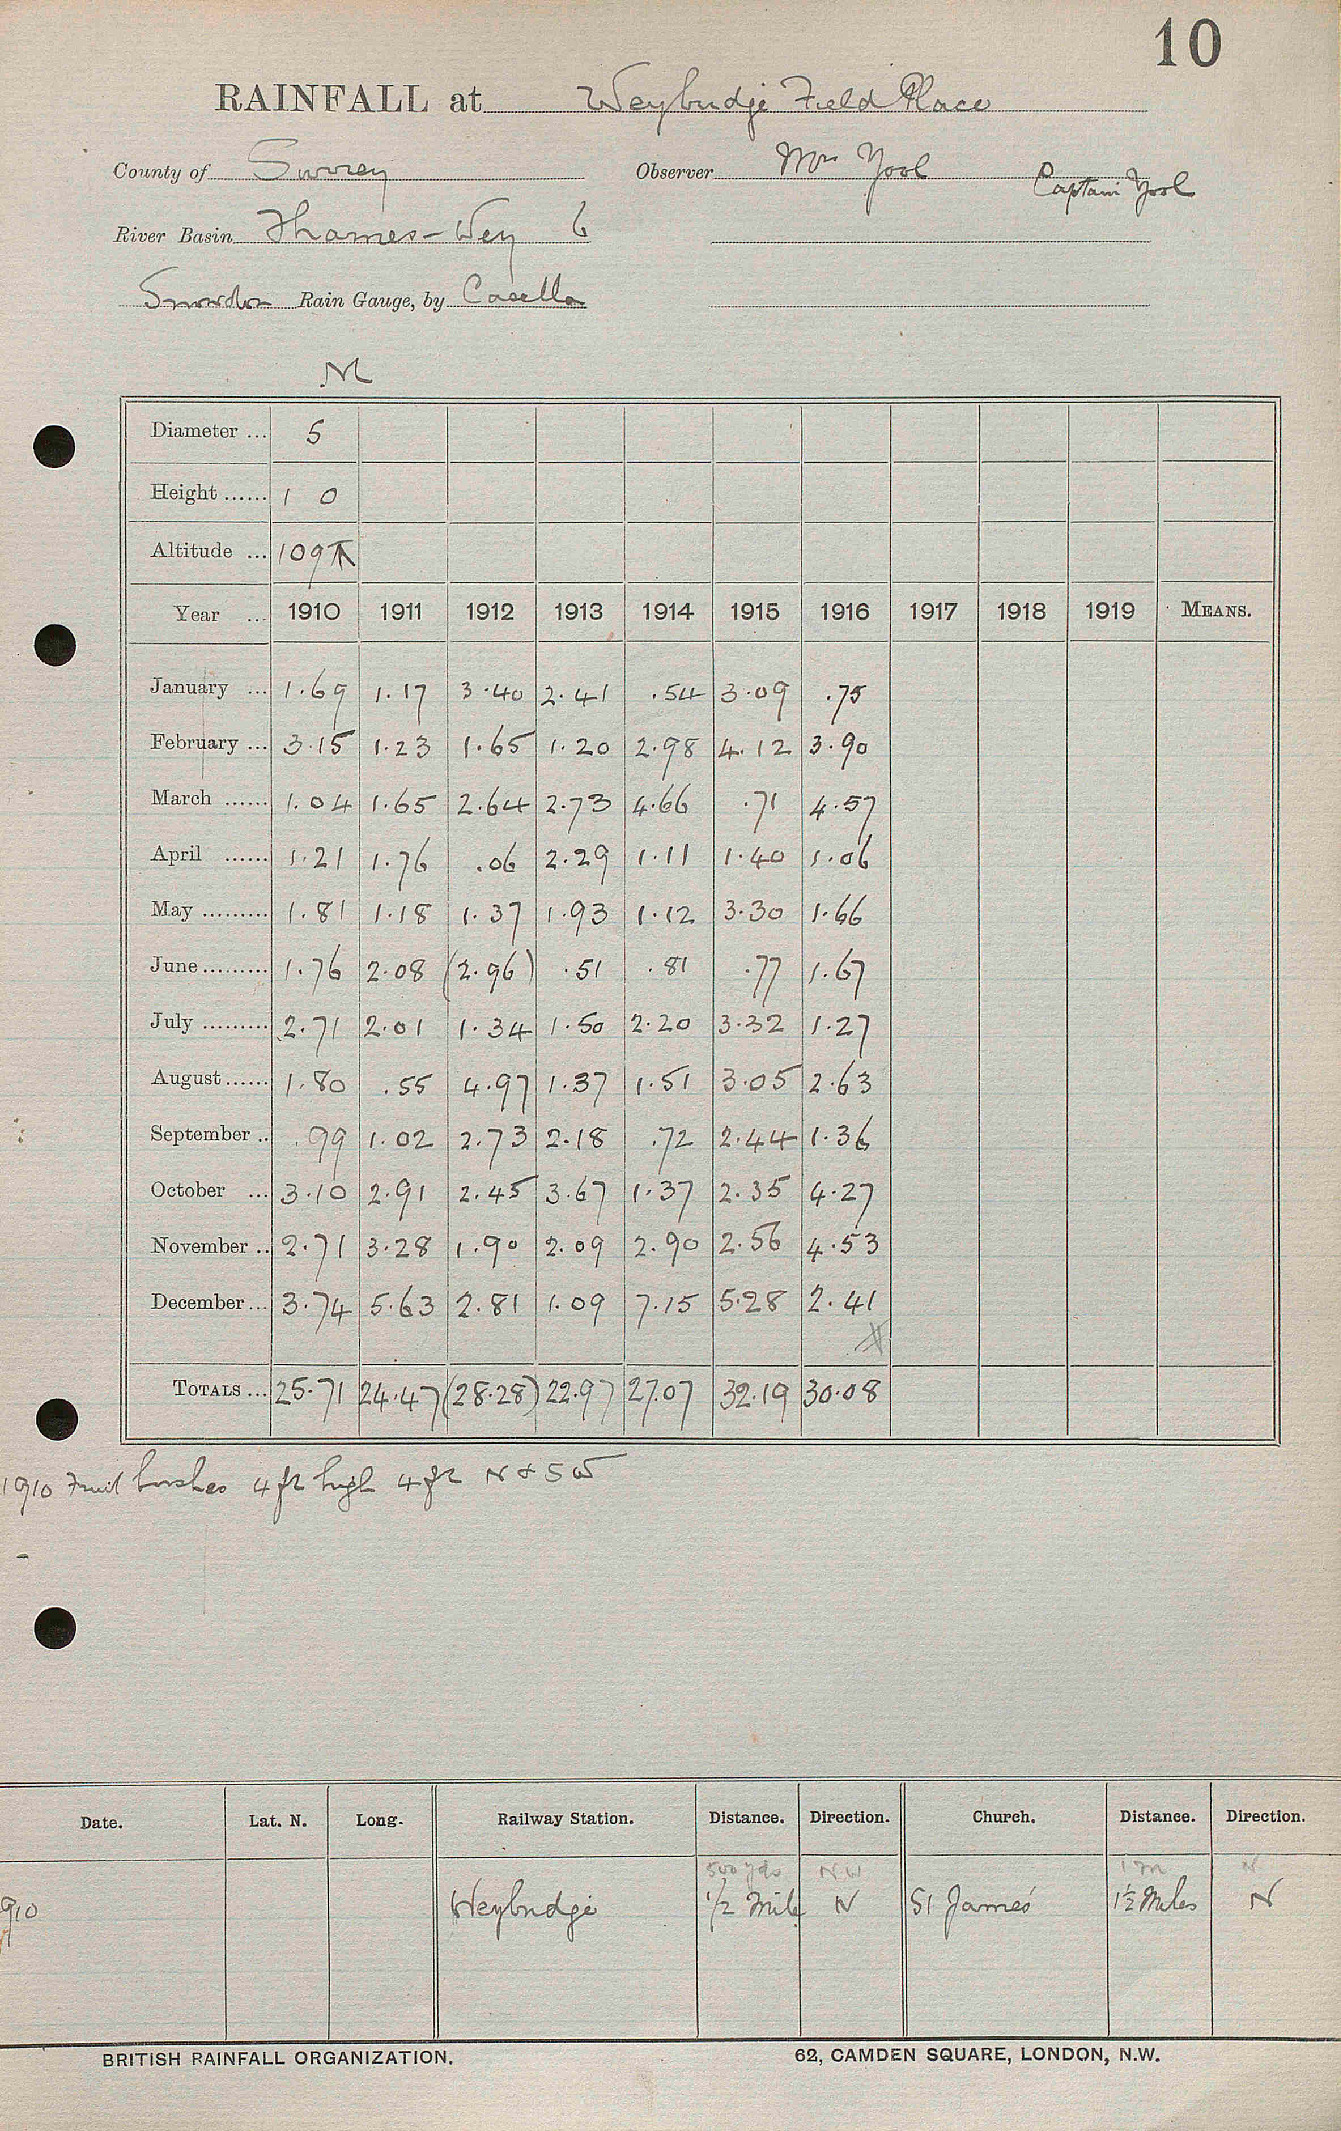 10
RAINFALL at Weybridge Field Place
County of Surrey Observer Mr Yool Captain Yool
River Basin Thames-Wey 6
Snowdon Rain Gauge, by Casella
M
Diameter ... 5
Height ...... 1 0
Altitude ... 109
Year ... 1910 1911 1912 1913 1914 1915 1916 1917 1918 1919 MEANS.
January ... 1.69 1.17 3.40 2.41 .54 3.09 .75
February ... 3.15 1.23 1.65 1.20 2.98 4.12 3.90
March ...... 1.04 1.65 2.64 2.73 4.66 .71 4.57
April ...... 1.21 1.76 .06 2.29 1.11 1.40 1.06
May ......... 1.81 1.18 1.37 1.93 1.12 3.30 1.66
June ......... 1.76 2.08 (2.96) .51 .81 .77 1.67
July ......... 2.71 2.01 1.34 1.50 2.20 3.32 1.27
August ...... 1.80 .55 4.97 1.37 1.51 3.05 2.63
September .. .99 1.02 2.73 2.18 .72 2.44 1.36
October ... 3.10 2.91 2.45 3.67 1.37 2.35 4.27
November .. 2.71 3.28 1.90 2.09 2.90 2.56 4.53
December ... 3.74 5.63 2.81 1.09 7.15 5.28 2.41
TOTALS ... 25.71 24.47 (28.28) 22.97 27.07 32.19 30.08
1910 Fruit bushes 4 ft high 4 ft N & SW
Date. Lat. N. Long. Railway Station. Distance. Direction. Church. Distance. Direction.
500 yds NW 1 m N
910 Weybridge 1/2 Mile N St James' 1½ Miles N
BRITISH RAINFALL ORGANIZATION. 62, CAMDEN SQUARE, LONDON, N.W.